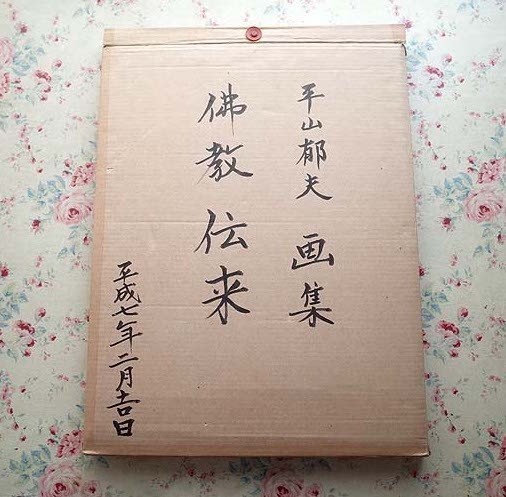 平山郁夫 画集
佛教伝来
平成七年二月吉日